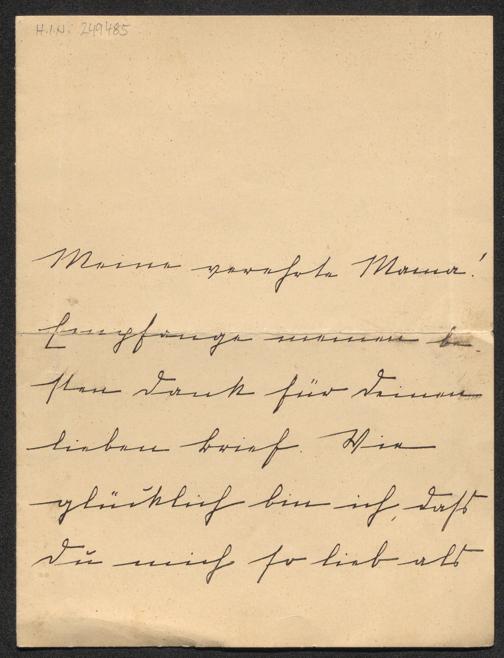 H.I.N. 249485
Meine verehrte Mama!
Empfange meinen be-
sten Dank für Deinen
lieben Brief. Wie
glücklich bin ich, daſs
Du mich so lieb als